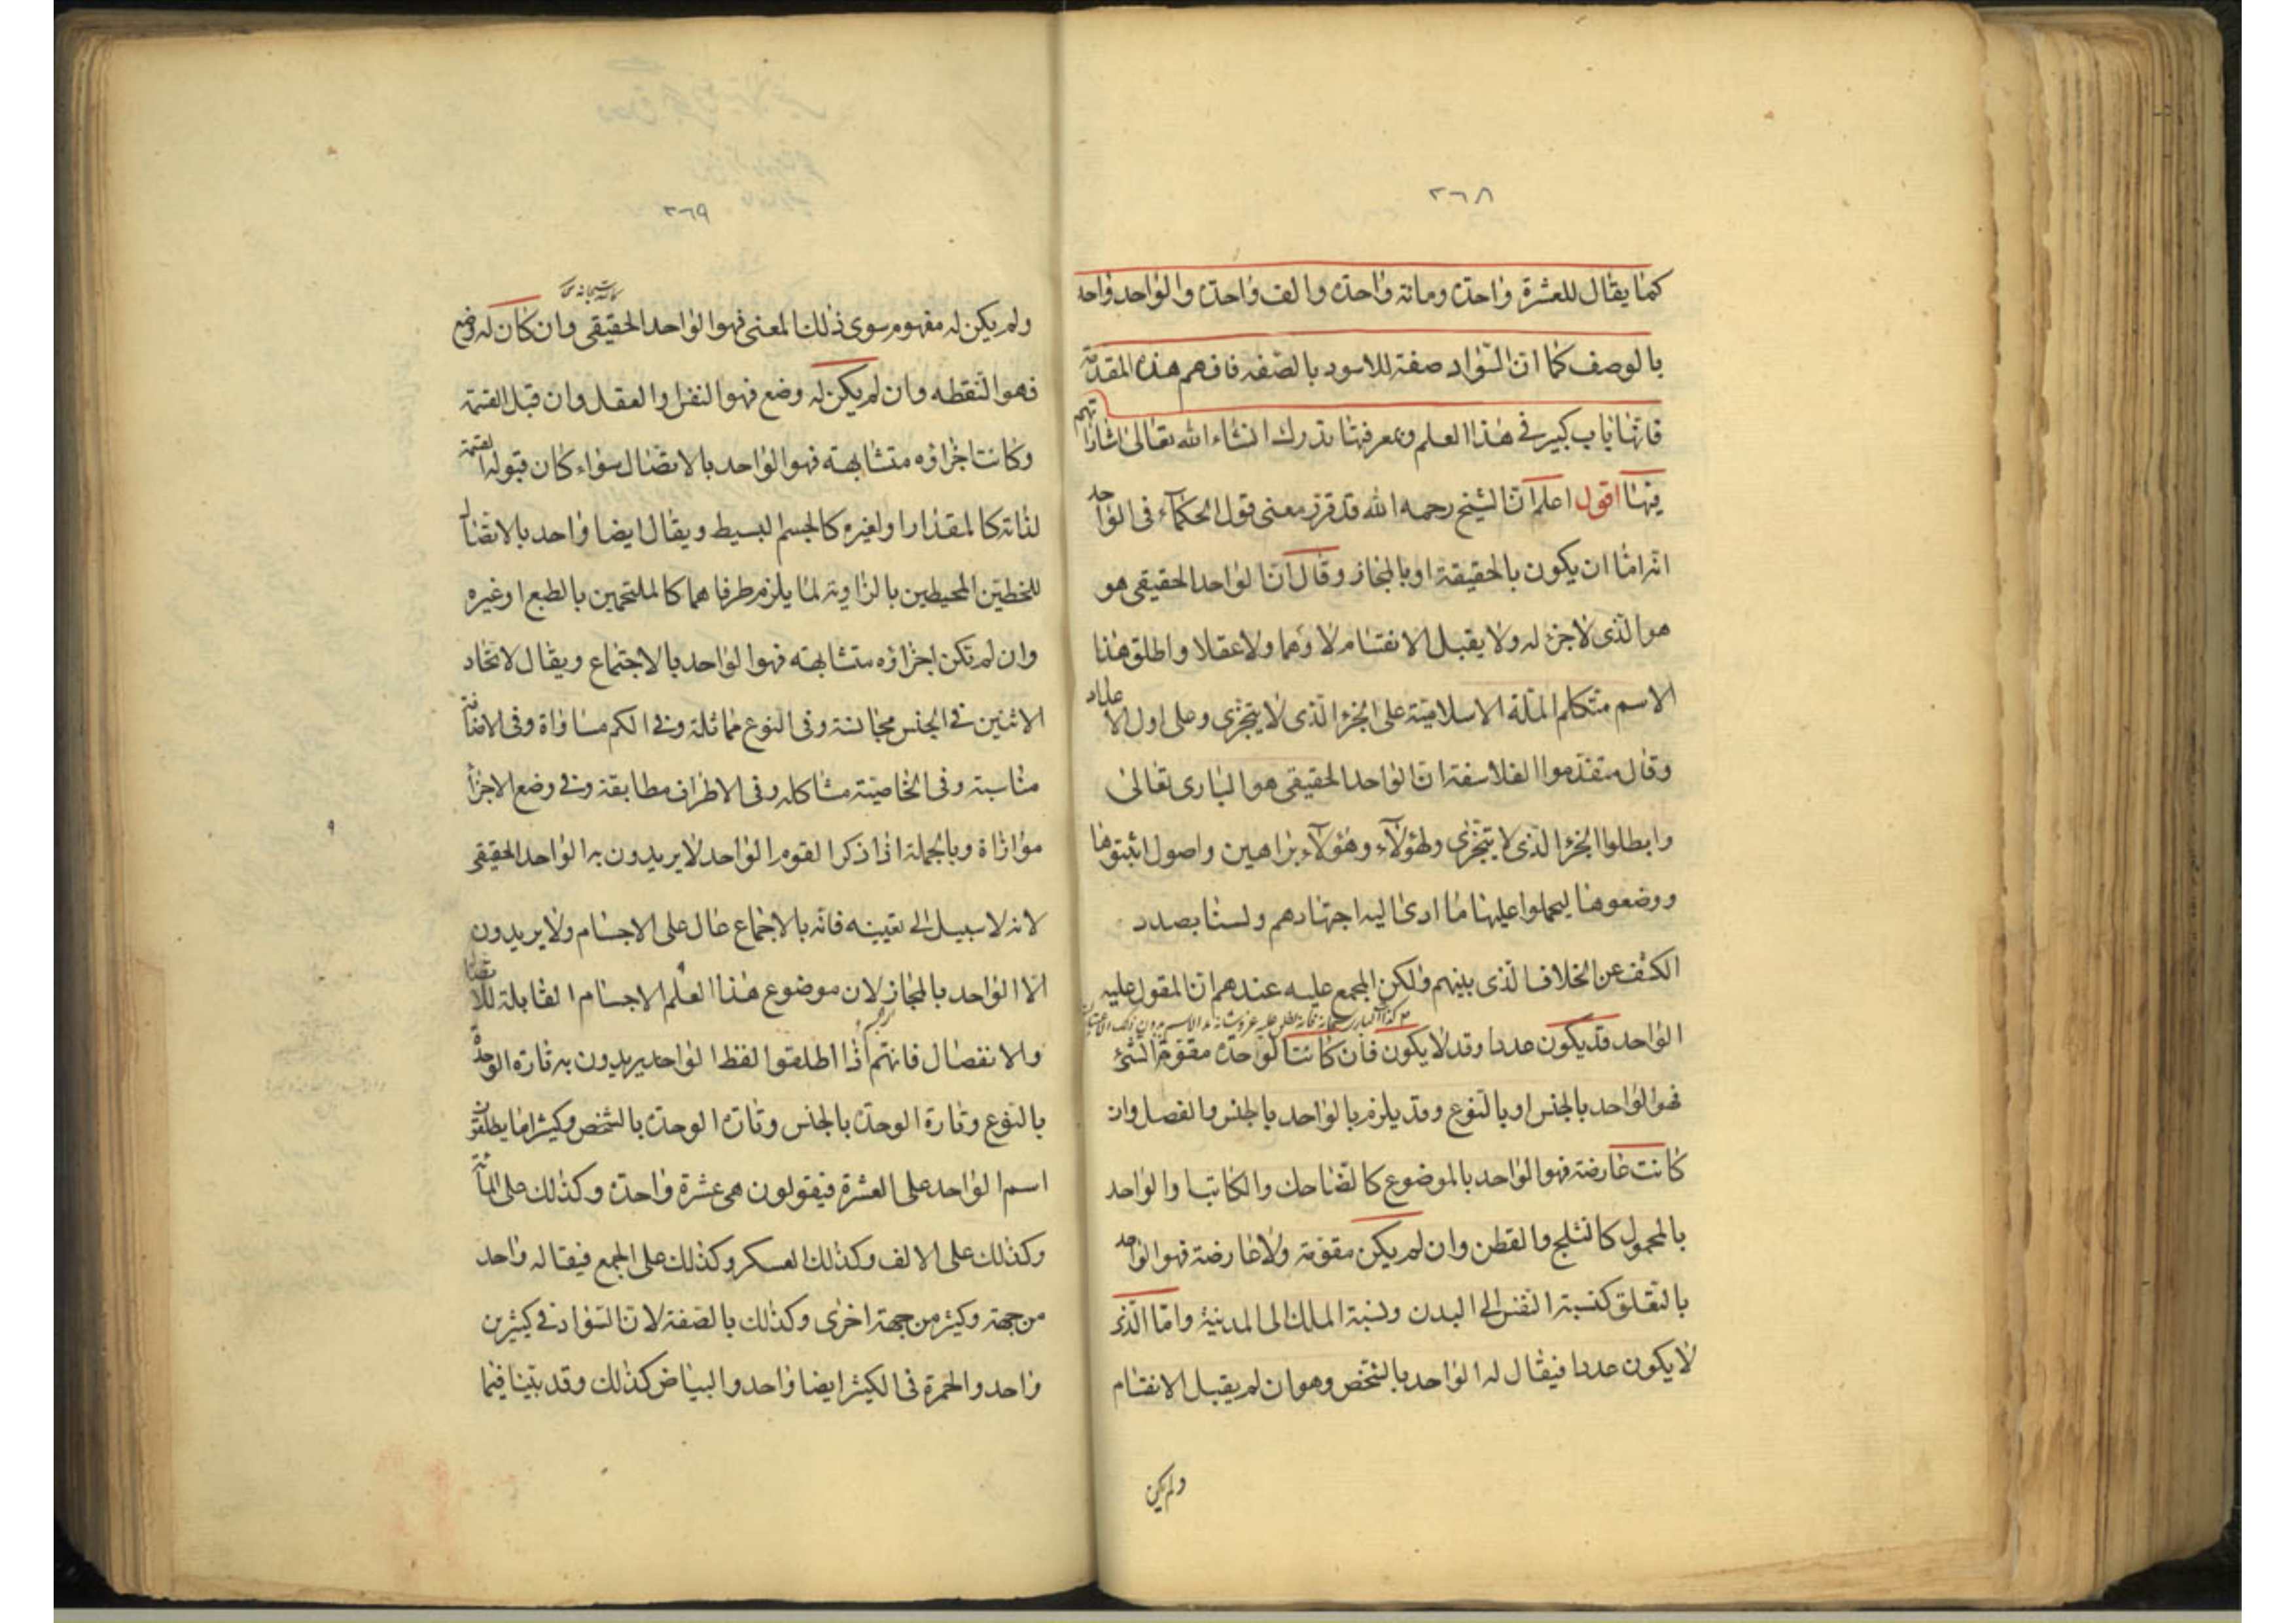 ٢٦٨
كما يقال للعشرة واحدة ومائة واحدة والف واحدة والواحد واحد
بالوصف كما ان السواد صفة للاسود بالصفة فافهم هذه المقدمة
فانها باب كبير فى هذا العلم وبمعرفتها تدرك انشاء الله تعالى اشاراتهم
فيها اقول اعلم ان الشيخ رحمه الله قد قرر معنى قول الحكماء فى الواحد
انه اما ان يكون بالحقيقة او بالمجاز وقال ان الواحد الحقيقى هو
هو الذى لا جزء له ولا يقبل الانقسام لا وهما ولا عقلا واطلق هذا
الاسم متكلم الملة الاسلامية على الجزء الذى لا يتجزى وعلى اول الاعداد
وقال متقدموا الفلاسفة ان الواحد الحقيقى هو البارى تعالى
وابطلوا الجزء الذى لا يتجزى ولهؤلاء وهؤلاء براهين واصول اثبتوها
ووضعوها ليحملوا عليها ما ادى اليه اجتهادهم ولسنا بصدد
الكشف عن الخلاف الذى بينهم ولكن المجمع عليه عندهم ان المقول عليه
الواحد قد يكون عددا وقد لا يكون فان كانت الواحدة مقومة الشئ
فهو الواحد بالجنس او بالنوع وقد يلزم بالواحد بالجنس والفصل وان
كانت عارضة فهو الواحد بالموضوع كالضاحك والكاتب والواحد
بالمحمول كالثلج والقطن وان لم يكن مقومة ولا عارضة فهو الواحد
بالتعلق كنسبة النفس الى البدن ونسبة الملك الى المدينة واما الذى
لا يكون عددا فيقال له الواحد بالشخص وهو ان لم يقبل الانقسام
ولم يكن
٢٦٩
ولم يكن له مفهوم سوى ذلك المعنى فهو الواحد الحقيقى وان كان له وضع
فهو النقطه وان لم يكن له وضع فهو النفس والعقل وان قبل القسمة
وكانت اجزاؤه متشابهة فهو الواحد بالاتصال سواء كان قبوله القسمة
لذاته كالمقدار او لغيره كالجسم البسيط ويقال ايضا واحد بالاتصال
للخطين المحيطين بالزاوية لما يلزم طرفاهما كالملتحمين بالطبع او غيره
وان لم تكن اجزاؤه متشابهة فهو الواحد بالاجتماع ويقال لاتحاد
الاثنين فى الجنس مجانسة وفى النوع مماثلة وفى الكم مساواة وفى الاضافة
مناسبة وفى الخاصية مشاكله وفى الاطراف مطابقة وفى وضع الاجزاء
موازاة وبالجملة اذا ذكر القوم الواحد لا يريدون به الواحد الحقيقى
لانه لا سبيل الى تعيينه فانه بالاجماع عال على الاجسام ولا يريدون
الا الواحد بالمجاز لان موضوع هذا العلم الاجسام القابلة للاتصال
والانفصال فانهم اذا اطلقوا لفظ الواحد يريدون به تارة الوحدة
بالنوع وتارة الوحدة بالجنس وتارة الوحدة بالشخص وكثيرا ما يطلقون
اسم الواحد على العشرة فيقولون هى عشرة واحدة وكذلك على المائة
وكذلك على الالف وكذلك العسكر وكذلك على الجمع فيقال له واحد
من جهة وكثير من جهة اخرى وكذلك بالصفة لان السواد فى كثيرين
واحد والحمرة فى الكثير ايضا واحد والبياض كذلك وقد بينا فيما